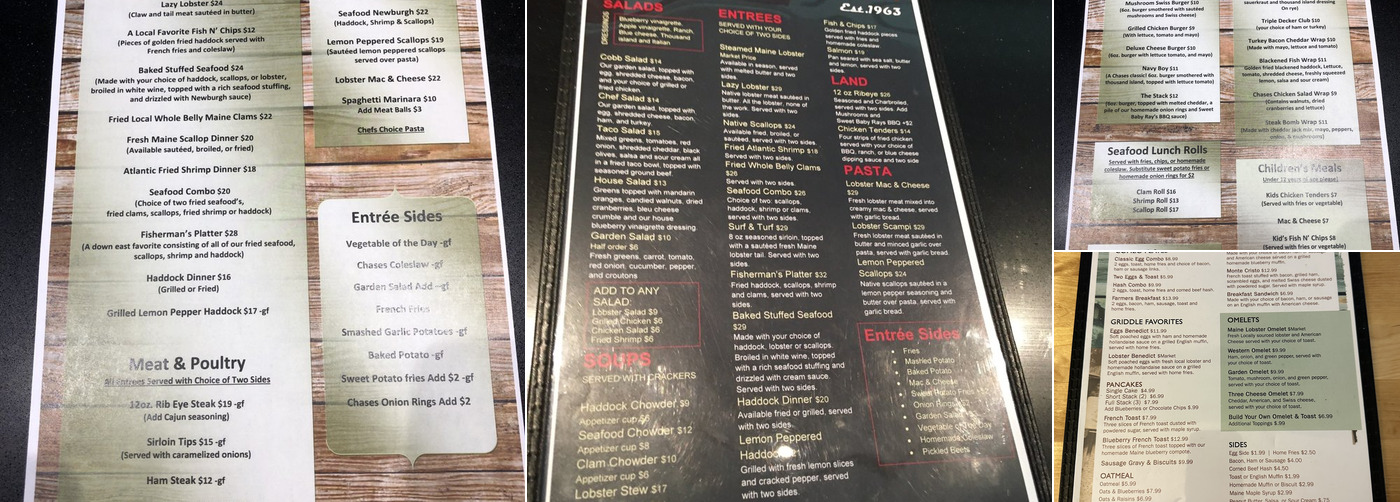 Lazy Lobster $24
(Claw and tail meat sautéed in butter)
A Local Favorite Fish N' Chips $12
(Pieces of golden fried haddock served with
French fries and coleslaw)
Baked Stuffed Seafood $24
(Made with your choice of haddock, scallops, or lobster,
broiled in white wine, topped with a rich seafood stuffing,
and drizzled with Newburgh sauce)
Fried Local Whole Belly Maine Clams $22
Fresh Maine Scallop Dinner $20
(Available sautéed, broiled, or fried)
Atlantic Fried Shrimp Dinner $18
Seafood Combo $20
(Choice of two fried seafood's,
fried clams, scallops, fried shrimp or haddock)
Fisherman's Platter $28
(A down east favorite consisting of all of our fried seafood,
scallops, shrimp and haddock)
Haddock Dinner $16
(Grilled or Fried)
Grilled Lemon Pepper Haddock $17 -gf
Meat & Poultry
All Entrees Served with Choice of Two Sides
12oz. Rib Eye Steak $19 -gf
(Add Cajun seasoning)
Sirloin Tips $15 -gf
(Served with caramelized onions)
Ham Steak $12 -gf
Seafood Newburgh $22
(Haddock, Shrimp & Scallops)
Lemon Peppered Scallops $19
(Sautéed lemon peppered scallops
served over pasta)
Lobster Mac & Cheese $22
Spaghetti Marinara $10
Add Meat Balls $3
Chefs Choice Pasta
Entrée Sides
Vegetable of the Day -gf
Chases Coleslaw -gf
Garden Salad Add -gf
French Fries
Smashed Garlic Potatoes -gf
Baked Potato -gf
Sweet Potato fries Add $2 -gf
Chases Onion Rings Add $2
SALADS
DRESSINGS
Blueberry vinaigrette,
Apple vinaigrette, Ranch,
Blue cheese, Thousand
island and Italian
Cobb Salad $14
Our garden salad, topped with
egg, shredded cheese, bacon,
and your choice of grilled or
fried chicken.
Chef Salad $14
Our garden salad, topped with
egg, shredded cheese, bacon,
ham, and turkey.
Taco Salad $15
Mixed greens, tomatoes, red
onion, shredded cheddar, black
olives, salsa and sour cream all
in a fried taco bowl, topped with
seasoned ground beef.
House Salad $13
Greens topped with mandarin
oranges, candied walnuts, dried
cranberries, bleu cheese
crumble and our house
blueberry vinaigrette dressing.
Garden Salad $10
Half order $6
Fresh greens, carrot, tomato,
red onion, cucumber, pepper,
and croutons
ADD TO ANY
SALAD:
Lobster Salad $9
Grilled Chicken $6
Chicken Salad $6
Fried Shrimp $6
SOUPS
SERVED WITH CRACKERS
Haddock Chowder $9
Appetizer cup
Seafood Chowder $12
Appetizer cup $8
Clam Chowder $10
Appetizer cup $6
Lobster Stew $17
ENTREES
SERVED WITH YOUR
CHOICE OF TWO SIDES
Steamed Maine Lobster
Market Price
Available in season, served
with melted butter and two
sides.
Lazy Lobster $29
Native lobster meat sautéed in
butter. All the lobster, none of
the work. Served with two
sides.
Native Scallops $24
Available fried, broiled, or
sautéed, served with two sides.
Fried Atlantic Shrimp $18
Served with two sides.
Fried Whole Belly Clams
$26
Served with two sides.
Seafood Combo $26
Choice of two: scallops,
haddock, shrimp or clams,
served with two sides.
Surf & Turf $29
8 oz seasoned sirloin, topped
with a sautéed fresh Maine
lobster tail. Served with two
sides.
Fisherman's Platter $32
Fried haddock, scallops, shrimp
and clams, served with two
sides.
Baked Stuffed Seafood
$29
Made with your choice of
haddock, lobster or scallops.
Broiled in white wine, topped
with a rich seafood stuffing and
drizzled with cream sauce.
Served with two sides.
Haddock Dinner $20
Available fried or grilled, served
with two sides.
Lemon Peppered
Haddock
Grilled with fresh lemon slices
and cracked pepper, served
with two sides.
Est.1963
Fish & Chips $17
Golden fried haddock pieces
served with fries and
homemade coleslaw
Salmon $19
Pan seared with sea salt, butter
and lemon, served with two
sides.
LAND
12 oz Ribeye $26
Seasoned and Charbroiled,
served with two sides. Add
Mushrooms and
Sweet Baby Rays BBQ +$2
Chicken Tenders $14
Four strips of fried chicken
served with your choice of
BBQ, ranch, or blue cheese
dipping sauce and two side
PASTA
Lobster Mac & Cheese
$29
Fresh lobster meat mixed into
creamy mac & cheese, served
with garlic bread.
Lobster Scampi $29
Fresh lobster meat sautéed in
butter and minced garlic over
pasta, served with garlic bread.
Lemon Peppered
Scallops $24
Native scallops sautéed in a
lemon pepper seasoning and
butter over pasta, served with
garlic bread.
Entrée Sides
• Fries
• Mashed Potato
• Baked Potato
• Mac & Cheese
• Sweet Potato Fries
• Onion Rings
• Garden Salad
• Vegetable of the Day
• Homemade Coleslaw
• Pickled Beets
Mushroom Swiss Burger $10
(6oz. burger smothered with sautéed
mushrooms and Swiss cheese)
Grilled Chicken Burger $9
(With lettuce, tomato and mayo)
Deluxe Cheese Burger $10
(6oz. burger with lettuce, tomato, and mayo)
Navy Boy $11
(A Chases classic! 6oz. burger smothered with
thousand island, topped with lettuce tomato)
The Stack $12
(6oz. burger, topped with melted cheddar, a
pile of our homemade onion rings and Sweet
Baby Ray's BBQ sauce)
Seafood Lunch Rolls
Served with fries, chips, or homemade
coleslaw. Substitute sweet potato fries or
homemade onion rings for $2
Clam Roll $16
Shrimp Roll $13
Scallop Roll $17
sauerkraut and thousand island dressing
On rye)
Triple Decker Club $10
(your choice of ham or turkey)
Turkey Bacon Cheddar Wrap $10
(Made with mayo, lettuce and tomato)
Blackened Fish Wrap $11
Golden fried blackened haddock, Lettuce,
tomato, shredded cheese, freshly squeezed
lemon, salsa and sour cream)
Chases Chicken Salad Wrap $9
(Contains walnuts, dried
cranberries and lettuce)
Steak Bomb Wrap $11
(Made with cheddar jack mix, mayo, peppers,
onions, & mushrooms)
Children's Meals
Under 12 years of age please)
Kids Chicken Tenders $7
(Served with fries or vegetable)
Mac & Cheese $7
Kid's Fish N' Chips $8
(Served with fries or vegetable)
Classic Egg Combo $8.99
2 eggs, toast, home fries and choice of bacon,
ham or sausage links.
Two Eggs & Toast $5.99
Hash Combo $9.99
2 eggs, toast, home fries and corned beef hash.
Farmers Breakfast $13.99
2 eggs, bacon, ham, sausage, toast and
home fries.
GRIDDLE FAVORITES
Eggs Benedict $11.99
Soft poached eggs with ham and homemade
hollandaise sauce on a grilled English muffin,
served with home fries.
Lobster Benedict $Market
Soft poached eggs with fresh local lobster and
homemade hollandaise sauce on a grilled
English muffin, served with home fries.
PANCAKES
Single Cake $4.99
Short Stack (2) $6.99
Full Stack (3) $7.99
Add Blueberries or Chocolate Chips $.99
French Toast $7.99
Three slices of French toast dusted with
powdered sugar, served with maple syrup.
Blueberry French Toast $12.99
Three slices of French toast topped with our
homemade Maine blueberry compote.
Sausage Gravy & Biscuits $9.99
OATMEAL
Oatmeal $5.99
Oats & Blueberries $7.99
Oats & Raisins $6.99
and American cheese served on a grilled
homemade blueberry muffin.
Monte Cristo $12.99
French toast stuffed with bacon, grilled ham,
scrambled eggs, and melted Swiss cheese dusted
with powdered sugar. Served with maple syrup.
Breakfast Sandwich $6.99
Made with your choice of bacon, ham, or sausage
and on an English muffin with American cheese.
OMELETS
Maine Lobster Omelet $Market
Fresh Locally sourced lobster and American
Cheese served with your choice of toast.
Western Omelet $9.99
Ham, onion, and green pepper, served with
your choice of toast.
Garden Omelet $9.99
Tomato, mushroom, onion, and green pepper,
served with your choice of toast.
Three Cheese Omelet $7.99
Cheddar, American, and Swiss cheese,
served with your choice of toast.
Build Your Own Omelet & Toast $6.99
Additional Toppings $.99
SIDES
Egg Side $1.99 | Home Fries $2.50
Bacon, Ham, or Sausage $4.00
Corned Beef Hash $4.50
Toast or English Muffin $1.99
Homemade Muffin or Biscuit $2.99
Maine Maple Syrup $2.99